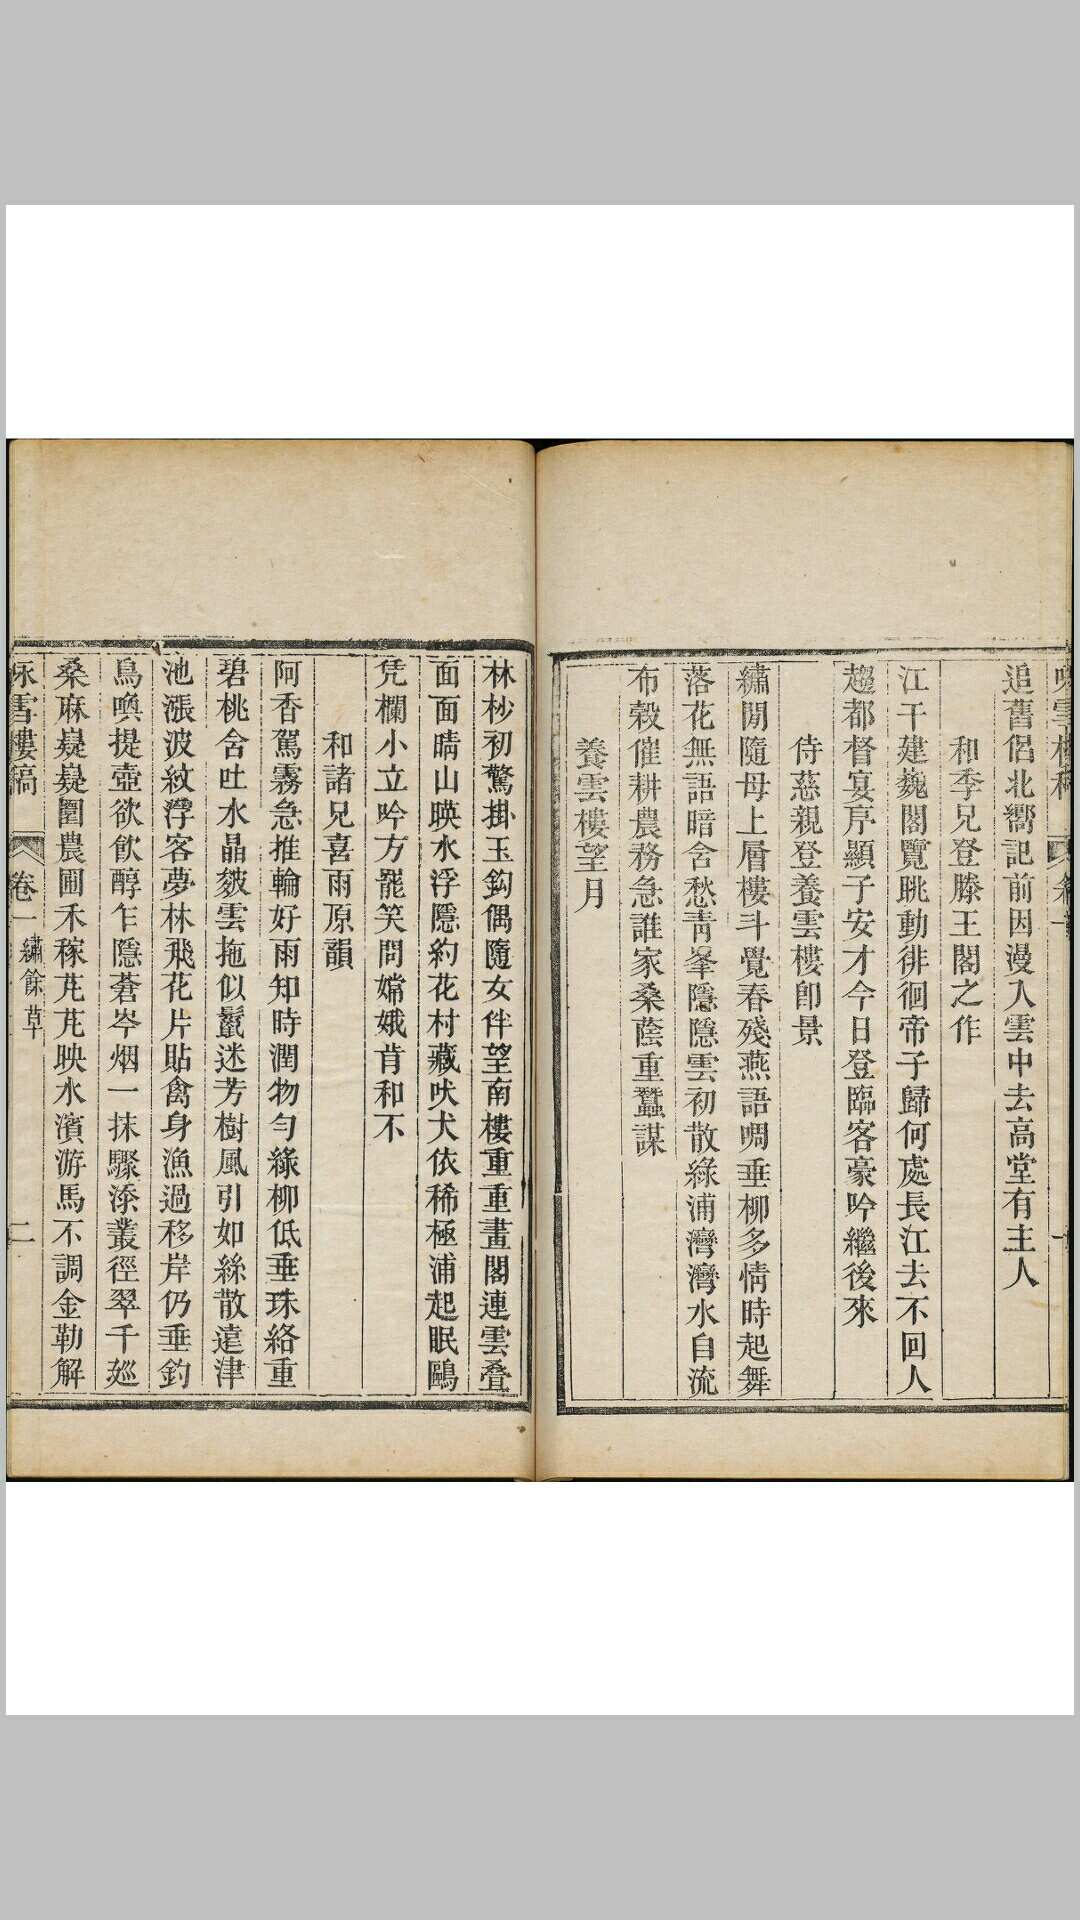 追舊侶北嚮記前因漫入雲中去高堂有主人
和季兄登滕王閣之作
江干建巍閣覽眺動徘徊帝子歸何處長江去不回人
趨都督宴序顯子安才今日登臨客豪吟繼後來
侍慈親登養雲樓卽景
繡閒隨母上層樓斗覺春殘燕語啁垂柳多情時起舞
落花無語暗含愁靑峯隱隱雲初散綠浦灣灣水自流
布穀催耕農務急誰家桑蔭重蠶謀
養雲樓望月
林杪初驚掛玉鈎偶隨女伴望南樓重重畫閣連雲叠
面面晴山暎水浮隱約花村藏吠犬依稀極浦起眠鷗
凭欄小立吟方罷笑問嫦娥肯和不
和諸兄喜雨原韻
阿香駕霧急推輪好雨知時潤物勻綠柳低垂珠絡重
碧桃含吐水晶皴雲拖似鬣迷芳樹風引如絲散遠津
池漲波紋浮客夢林飛花片貼禽身漁過移岸仍垂釣
鳥喚提壺欲飮醇乍隱蒼岑烟一抹驟添叢徑翠千𡏖
桑麻嶷嶷圍農圃禾稼芃芃映水濱游馬不調金勒解
咏雪樓稿 卷一 繡餘草 二